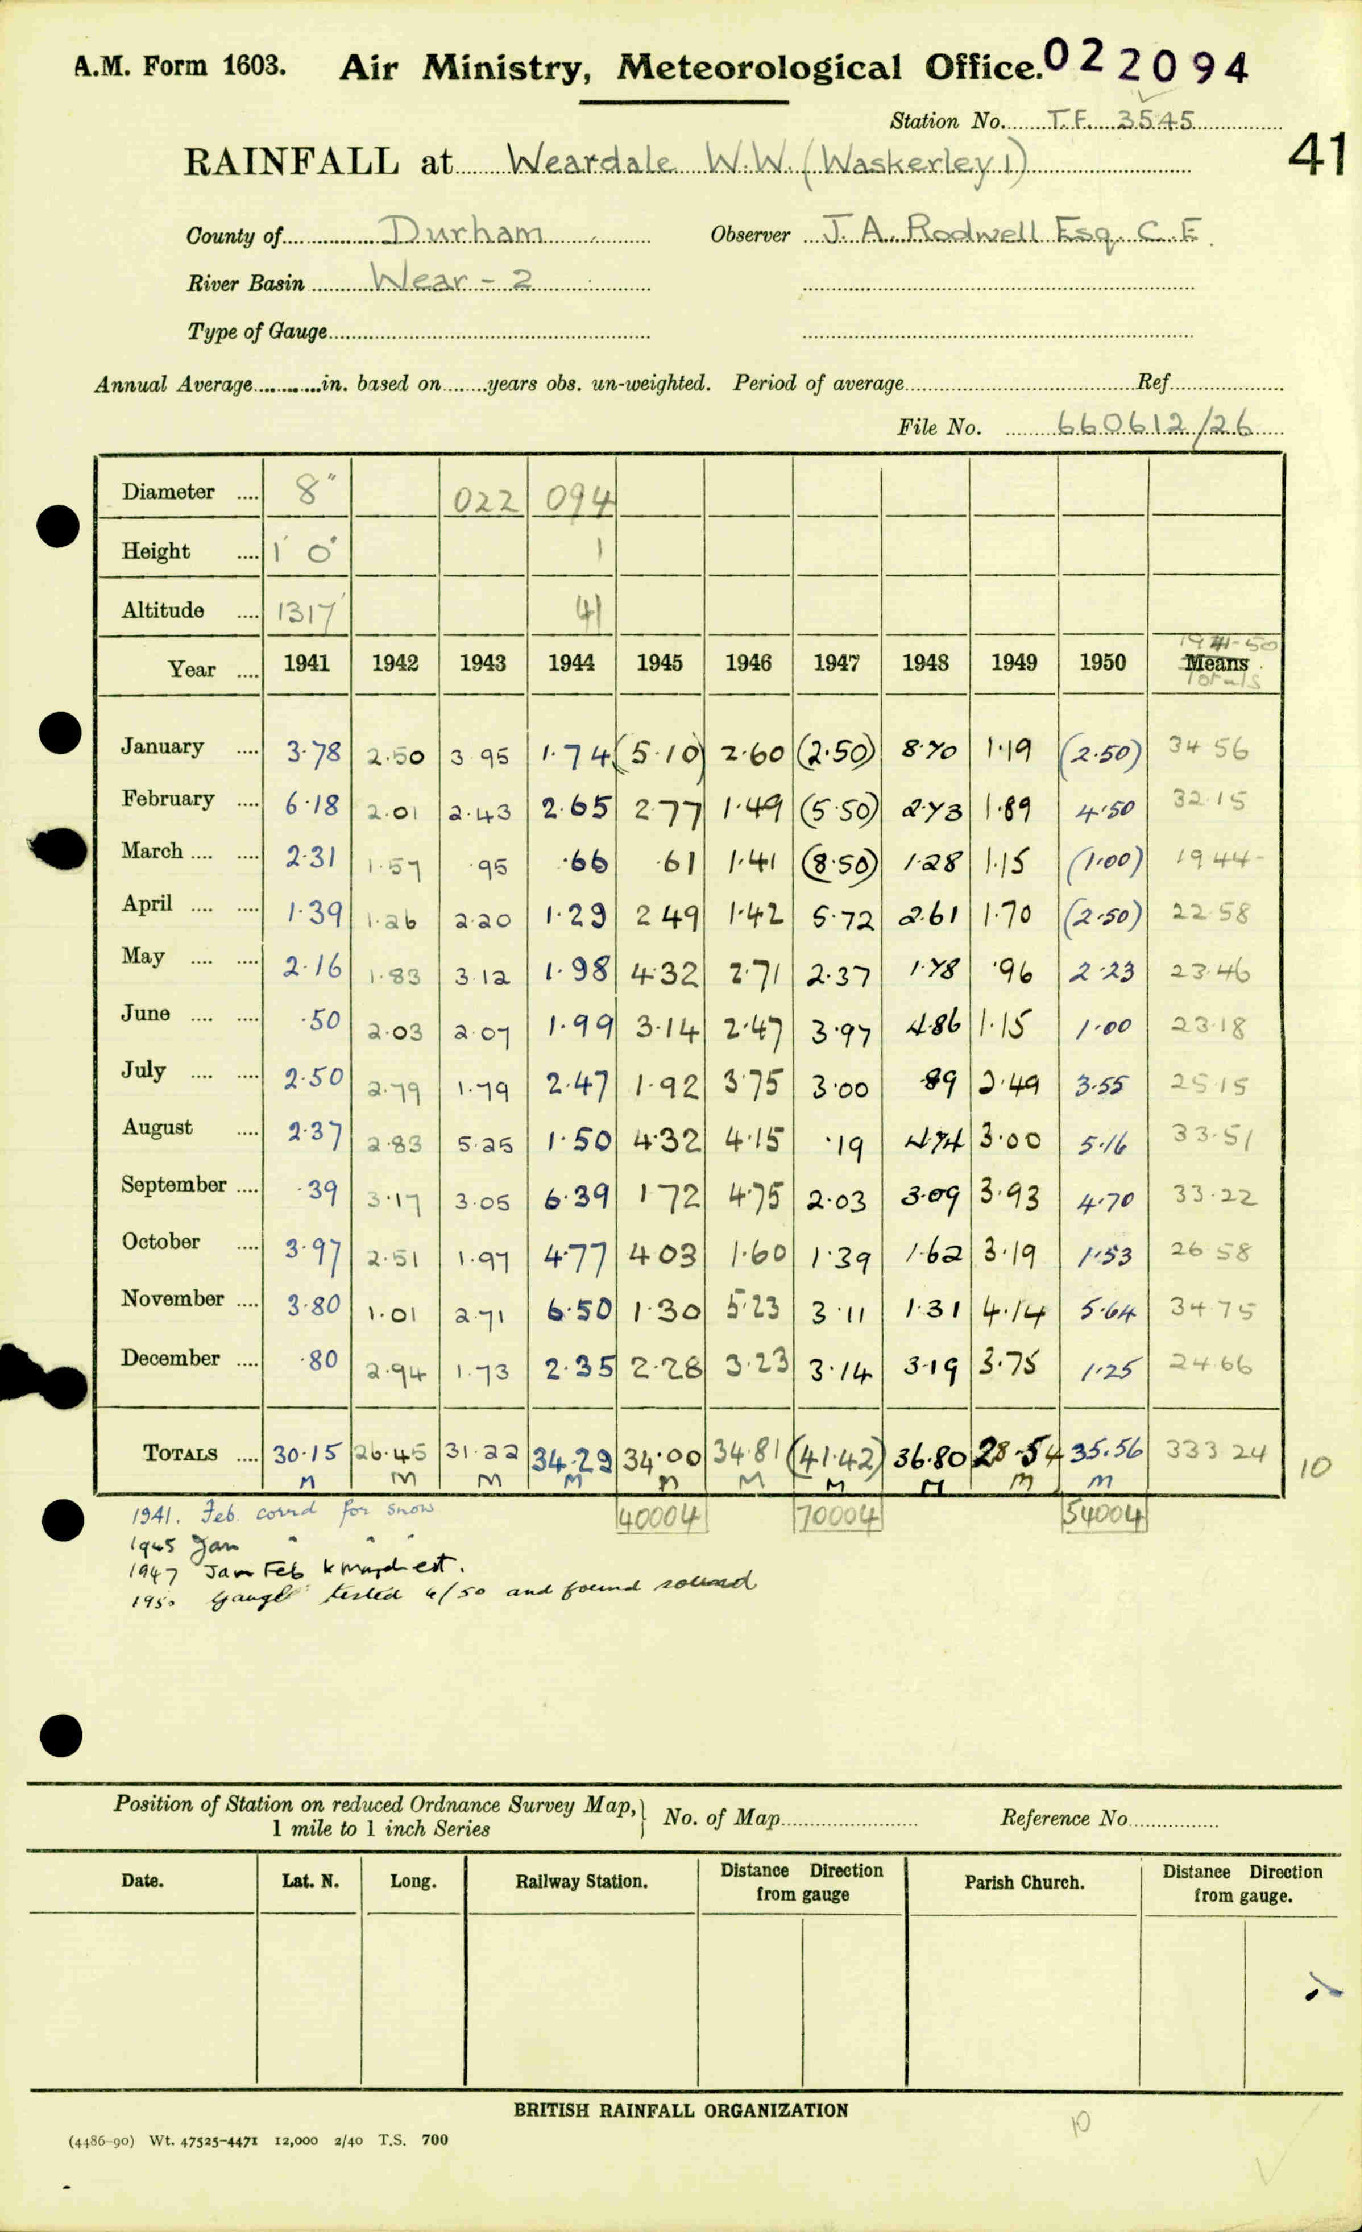 A.M. Form 1603. Air Ministry, Meteorological Office. 022094
Station No. T.F. 3545
RAINFALL at Weardale W.W. (Waskerley 1) 41
County of Durham Observer J. A. Rodwell Esq. C.E.
River Basin Wear - 2
Type of Gauge
Annual Average in. based on years obs. un-weighted. Period of average Ref
File No. 660612/26
Diameter 8" 022 094
Height 1' 0" 1
Altitude 1317' 41
1941-50
Year 1941 1942 1943 1944 1945 1946 1947 1948 1949 1950 Means
Totals
January 3.78 2.50 3.95 1.74 (5.10) 2.60 (2.50) 8.70 1.19 (2.50) 34.56
February 6.18 2.01 2.43 2.65 2.77 1.49 (5.50) 2.73 1.89 4.50 32.15
March 2.31 1.57 .95 .66 .61 1.41 (8.50) 1.28 1.15 (1.00) 19.44
April 1.39 1.26 2.20 1.29 2.49 1.42 5.72 2.61 1.70 (2.50) 22.58
May 2.16 1.83 3.12 1.98 4.32 2.71 2.37 1.78 .96 2.23 23.46
June .50 2.03 2.07 1.99 3.14 2.47 3.97 4.86 1.15 1.00 23.18
July 2.50 2.79 1.79 2.47 1.92 3.75 3.00 .89 2.49 3.55 25.15
August 2.37 2.83 5.25 1.50 4.32 4.15 .19 4.74 3.00 5.16 33.51
September .39 3.17 3.05 6.39 1.72 4.75 2.03 3.09 3.93 4.70 33.22
October 3.97 2.51 1.97 4.77 4.03 1.60 1.39 1.62 3.19 1.53 26.58
November 3.80 1.01 2.71 6.50 1.30 5.23 3.11 1.31 4.14 5.64 34.75
December .80 2.94 1.73 2.35 2.28 3.23 3.14 3.19 3.75 1.25 24.66
TOTALS 30.15 26.45 31.22 34.29 34.00 34.81 (41.42) 36.80 28.54 35.56 333.24 10
M M M M M M M M M M
40004 70004 54004
1941. Feb. corrd for snow
1945 Jan " " "
1947 Jan Feb & March est.
1950 Gauge tested 6/50 and found sound
Position of Station on reduced Ordnance Survey Map, No. of Map Reference No
1 mile to 1 inch Series
Date. Lat. N. Long. Railway Station. Distance Direction from gauge Parish Church. Distance Direction from gauge.
BRITISH RAINFALL ORGANIZATION
10
(4486-90) Wt. 47525-4471 12,000 2/40 T.S. 700